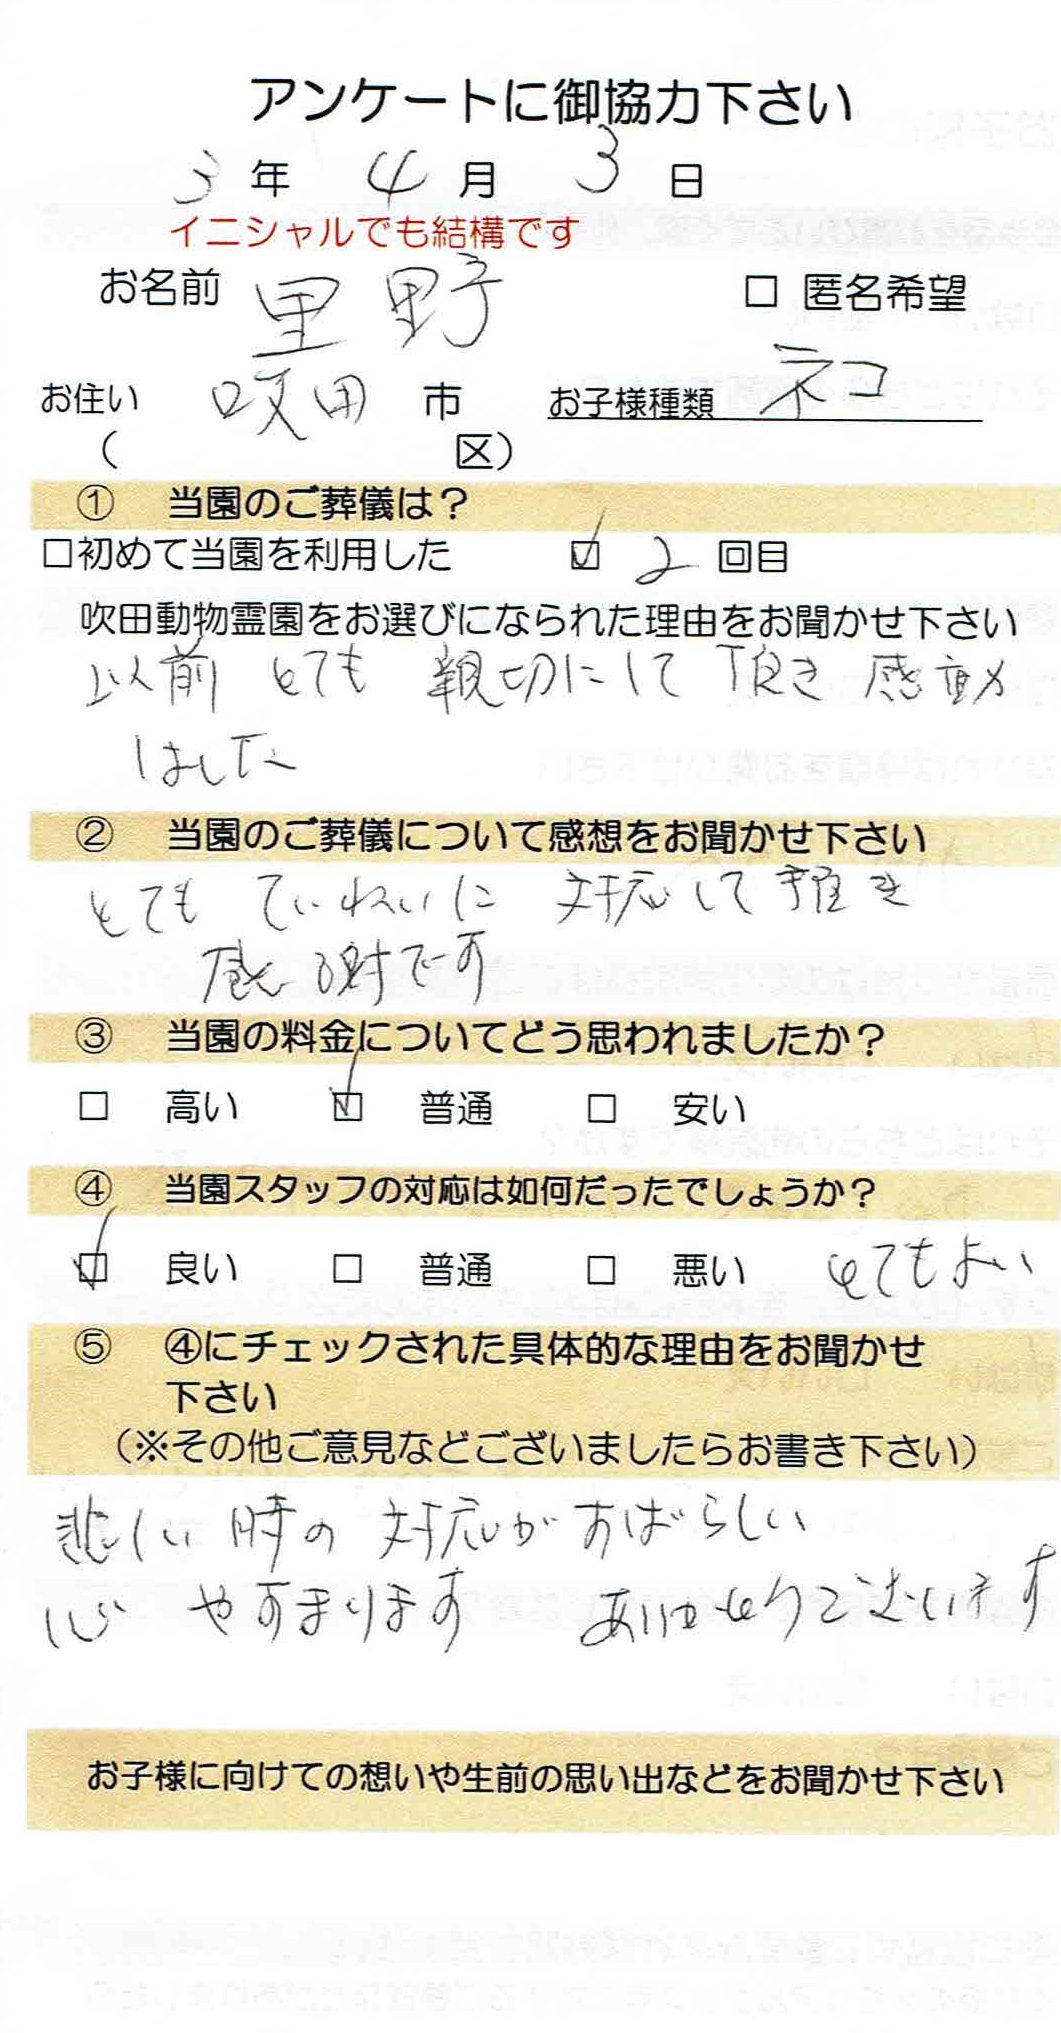 アンケートに御協力下さい
3年 4月 3日
イニシャルでも結構です
お名前 里野 □ 匿名希望
お住い 吹田 市 お子様種類 ネコ
( 区)
① 当園のご葬儀は？
□初めて当園を利用した ☑ 2 回目
吹田動物霊園をお選びになられた理由をお聞かせ下さい
以前 とても 親切にして 頂き 感動
しました
② 当園のご葬儀について感想をお聞かせ下さい
とても ていねいに 対応して 頂き
感謝です
③ 当園の料金についてどう思われましたか？
□ 高い ☑ 普通 □ 安い
④ 当園スタッフの対応は如何だったでしょうか？
☑ 良い □ 普通 □ 悪い とてもよい
⑤ ④にチェックされた具体的な理由をお聞かせ
下さい
（※その他ご意見などございましたらお書き下さい）
悲しい 時の 対応が すばらしい
心 やすまります ありがとうございます
お子様に向けての想いや生前の思い出などをお聞かせ下さい